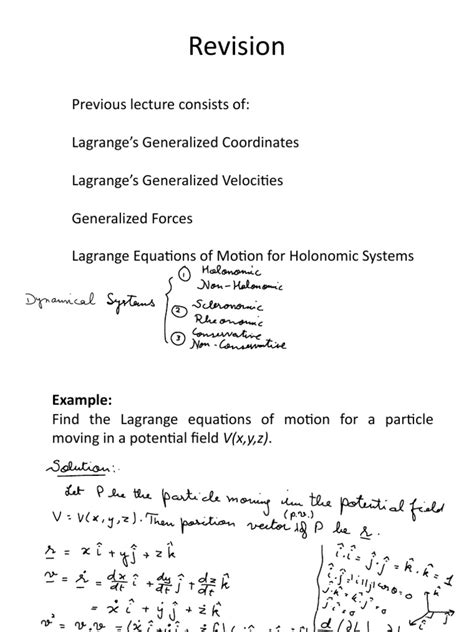 Revision
Previous lecture consists of:
Lagrange's Generalized Coordinates
Lagrange's Generalized Velocities
Generalized Forces
Lagrange Equations of Motion for Holonomic Systems
Dynamical Systems
① Holonomic
Non-Holonomic
② Scleronomic
Rheonomic
③ Conservative
Non-Conservative
Example:
Find the Lagrange equations of motion for a particle
moving in a potential field V(x,y,z).
Solution:-
Let P be the particle moving in the potential field
V = V(x,y,z). Then position vector (p.v.) of P be r.
r = x î + y ĵ + z k̂
v = ṙ = dx/dt î + dy/dt ĵ + dz/dt k̂
= ẋ î + ẏ ĵ + ż k̂
v² = v.v = (ẋ î + ẏ ĵ + ż k̂
î.î = ĵ.ĵ = k̂.k̂ = 1